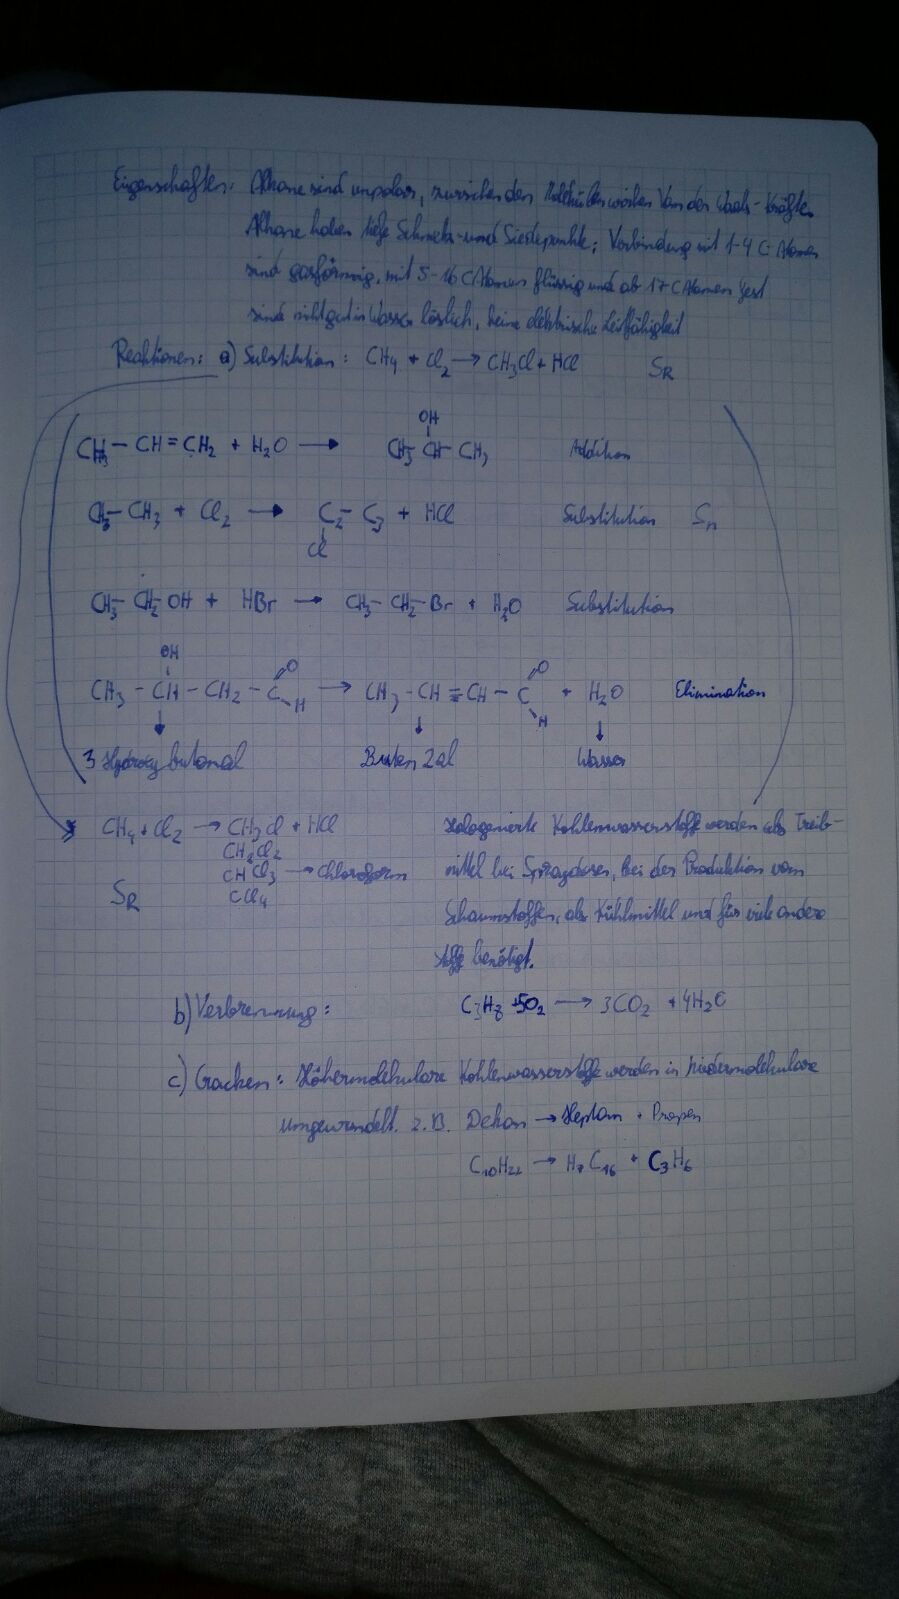 Eigenschaften: Alkane sind unpolar, zwischen den Molekülen wirken Van der Waals-Kräfte
Alkane haben tiefe Schmelz- und Siedepunkte; Verbindung mit 1-4 C Atomen
sind gasförmig, mit 5-16 C Atomen flüssig und ab 17 C Atomen fest
sind nicht gut in Wasser löslich, keine elektrische Leitfähigkeit
Reaktionen: a) Substitution: CH4 + Cl2 → CH3Cl + HCl SR
OH
CH3 – CH = CH2 + H2O → CH3 – CH – CH3 Addition
CH3 – CH3 + Cl2 → C2 – C3 + HCl Substitution Sn
Cl
CH3 – CH2 – OH + HBr → CH3 – CH2 – Br + H2O Substitution
OH O O
CH3 – CH – CH2 – C → CH3 – CH = CH – C + H2O Elimination
H H
3 Hydroxy butanal Buten 2 al Wasser
CH4 + Cl2 → CH3Cl + HCl Halogenierte Kohlenwasserstoffe werden als Treib-
CH2Cl2
CHCl3 → Chloroform mittel bei Spraydosen, bei der Produktion von
SR CCl4
Schaumstoffen, als Kühlmittel und für viele andere
Stoffe benötigt.
b) Verbrennung: C3H8 + 5O2 → 3CO2 + 4H2O
c) Cracken: Höhermolekulare Kohlenwasserstoffe werden in niedermolekulare
umgewandelt. z.B. Dekan → Heptan + Propen
C10H22 → H7C16 + C3H6